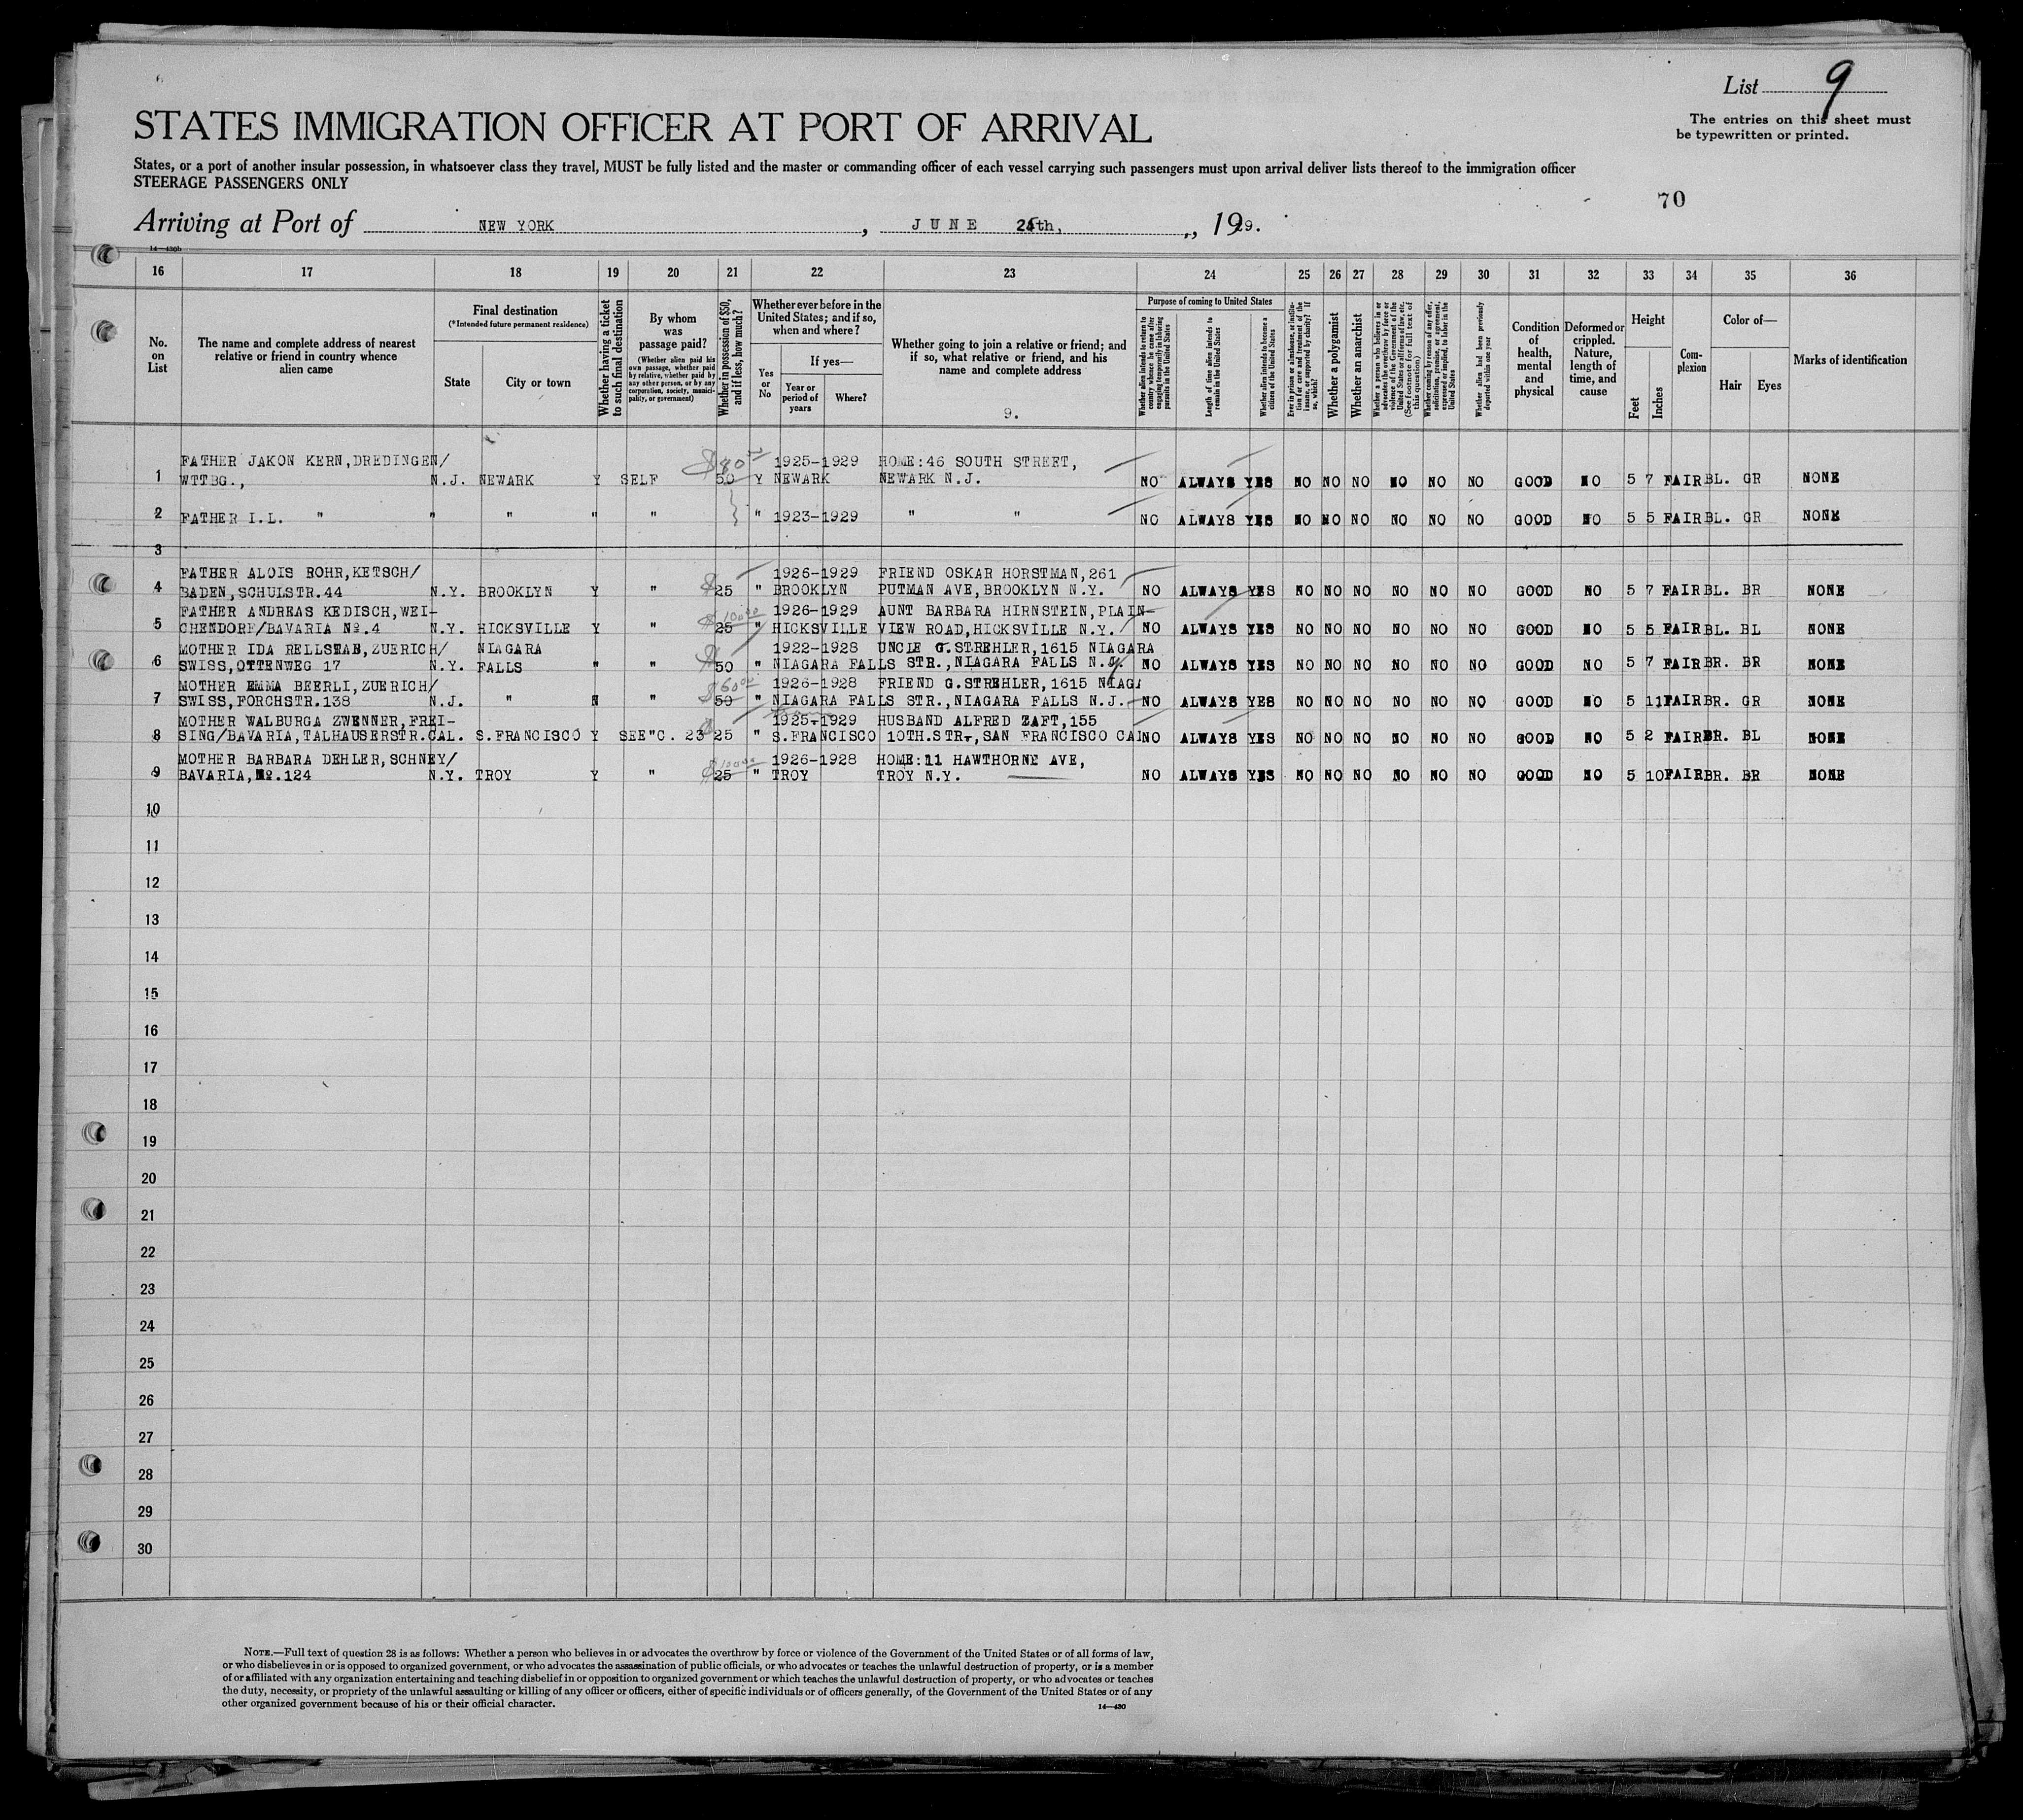 List 9
The entries on this sheet must
be typewritten or printed.
STATES IMMIGRATION OFFICER AT PORT OF ARRIVAL
States, or a port of another insular possession, in whatsoever class they travel, MUST be fully listed and the master or commanding officer of each vessel carrying such passengers must upon arrival deliver lists thereof to the immigration officer
STEERAGE PASSENGERS ONLY
70
Arriving at Port of NEW YORK, JUNE th, 1929.
14—430b
16 17 18 19 20 21 22 23 24 25 26 27 28 29 30 31 32 33 34 35 36
No. on List
The name and complete address of nearest relative or friend in country whence alien came
Final destination
(*Intended future permanent residence)
State
City or town
Whether having a ticket to such final destination
By whom was passage paid?
(Whether alien paid his own passage, whether paid by relative, whether paid by any other person, or by any corporation, society, municipality, or government)
Whether in possession of $50, and if less, how much?
Whether ever before in the United States; and if so, when and where?
Yes or No
If yes—
Year or period of years
Where?
Whether going to join a relative or friend; and if so, what relative or friend, and his name and complete address
9.
Purpose of coming to United States
Whether alien intends to return to country whence he came after engaging temporarily in laboring pursuits in the United States
Length of time alien intends to remain in the United States
Whether alien intends to become a citizen of the United States
Ever in prison or almshouse, or institution for care and treatment of the insane, or supported by charity? If so, which?
Whether a polygamist
Whether an anarchist
Whether a person who believes in or advocates the overthrow by force or violence of the Government of the United States or all forms of law, etc. (See footnote for full text of this question)
Whether coming by reason of any offer, solicitation, promise, or agreement, expressed or implied, to labor in the United States
Whether alien had been previously deported within one year
Condition of health, mental and physical
Deformed or crippled. Nature, length of time, and cause
Height
Feet
Inches
Complexion
Color of—
Hair
Eyes
Marks of identification
FATHER JAKON KERN,DREDINGEN/ $80 1925-1929 HOME:46 SOUTH STREET,
1 WTTBG., N.J. NEWARK Y SELF 50 Y NEWARK NEWARK N.J. NO ALWAYS YES NO NO NO NO NO NO GOOD NO 5 7 FAIR BL. GR NONE
2 FATHER I.L. " " " " " " 1923-1929 " " NO ALWAYS YES NO NO NO NO NO NO GOOD NO 5 5 FAIR BL. GR NONE
3
FATHER ALOIS ROHR,KETSCH/ 1926-1929 FRIEND OSKAR HORSTMAN,261
4 BADEN,SCHULSTR.44 N.Y. BROOKLYN Y " $25 " BROOKLYN PUTMAN AVE,BROOKLYN N.Y. NO ALWAYS YES NO NO NO NO NO NO GOOD NO 5 7 FAIR BL. BR NONE
FATHER ANDREAS KEDISCH,WEI- $100 1926-1929 AUNT BARBARA HIRNSTEIN,PLAIN-
5 CHENDORF/BAVARIA No.4 N.Y. HICKSVILLE Y " 25 " HICKSVILLE VIEW ROAD,HICKSVILLE N.Y. NO ALWAYS YES NO NO NO NO NO NO GOOD NO 5 5 FAIR BL. BL NONE
MOTHER IDA RELLSTAB,ZUERICH/ NIAGARA 1922-1928 UNCLE G.STREHLER,1615 NIAGARA
6 SWISS,OTTENWEG 17 N.Y. FALLS " " $50 " NIAGARA FALLS STR.,NIAGARA FALLS N.Y. NO ALWAYS YES NO NO NO NO NO NO GOOD NO 5 7 FAIR BR. BR NONE
MOTHER EMMA BEERLI,ZUERICH/ $60 1926-1928 FRIEND G.STREHLER,1615 NIAGA
7 SWISS,FORCHSTR.138 N.J. " N " 50 " NIAGARA FALLS STR.,NIAGARA FALLS N.J. NO ALWAYS YES NO NO NO NO NO NO GOOD NO 5 11 FAIR BR. GR NONE
MOTHER WALBURGA ZWENNER,FREI- 1925-1929 HUSBAND ALFRED ZAFT,155
8 SING/BAVARIA,TALHAUSERSTR. CAL. S.FRANCISCO Y SEE"C. 23 25 " S.FRANCISCO 10TH.STR.,SAN FRANCISCO CAL NO ALWAYS YES NO NO NO NO NO NO GOOD NO 5 2 FAIR BR. BL NONE
MOTHER BARBARA DEHLER,SCHNEY/ $100 1926-1928 HOME:11 HAWTHORNE AVE,
9 BAVARIA,No.124 N.Y. TROY Y " 25 " TROY TROY N.Y. NO ALWAYS YES NO NO NO NO NO NO GOOD NO 5 10 FAIR BR. BR NONE
10
11
12
13
14
15
16
17
18
19
20
21
22
23
24
25
26
27
28
29
30
NOTE.—Full text of question 28 is as follows: Whether a person who believes in or advocates the overthrow by force or violence of the Government of the United States or of all forms of law,
or who disbelieves in or is opposed to organized government, or who advocates the assassination of public officials, or who advocates or teaches the unlawful destruction of property, or is a member
of or affiliated with any organization entertaining and teaching disbelief in or opposition to organized government or which teaches the unlawful destruction of property, or who advocates or teaches
the duty, necessity, or propriety of the unlawful assaulting or killing of any officer or officers, either of specific individuals or of officers generally, of the Government of the United States or of any
other organized government because of his or their official character.
14—430